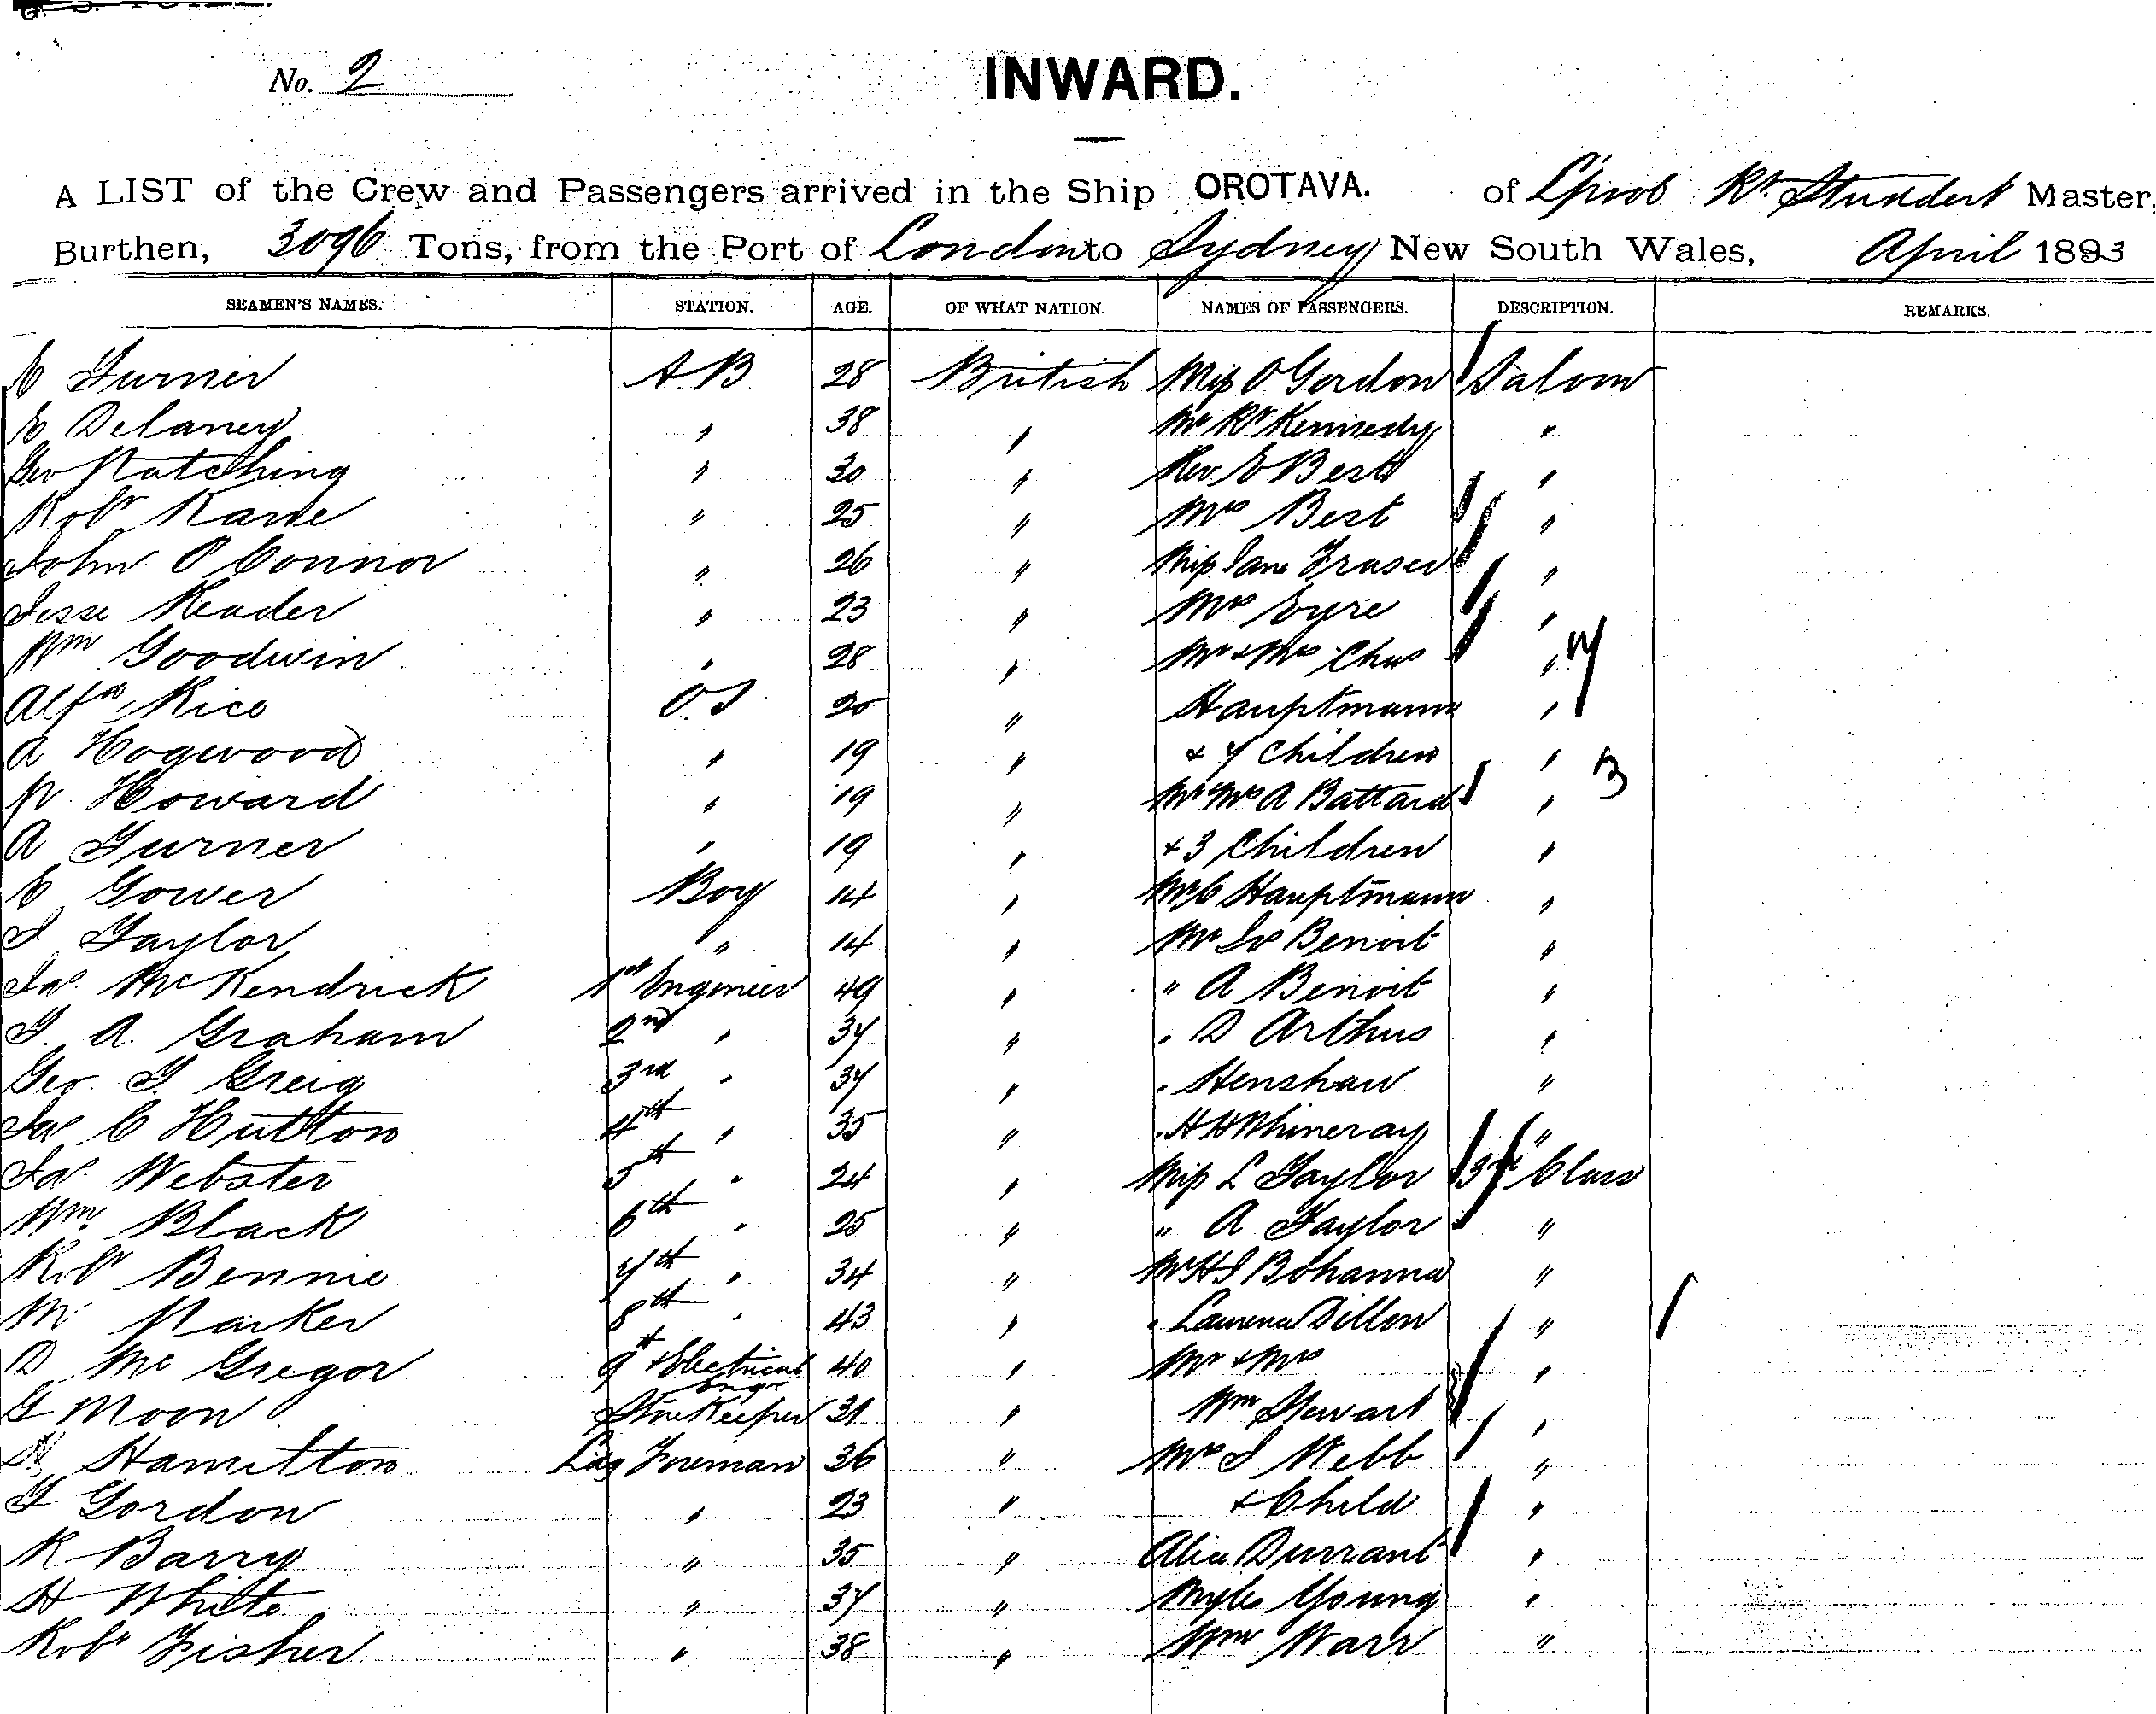 No. 2
INWARD.
A LIST of the Crew and Passengers arrived in the Ship OROTAVA. of L'pool Rt. Studdert Master,
Burthen, 3096 Tons, from the Port of London to Sydney New South Wales, April 1893
SEAMEN'S NAMES. STATION. AGE. OF WHAT NATION. NAMES OF PASSENGERS. DESCRIPTION. REMARKS.
E Turner AB 28 British Miss O Gordon Saloon
E Delaney " 38 " Mr Rt Kennedy "
Geo Hatching " 30 " Rev E Best "
Robt Kane " 25 " Mrs Best "
John O'Connor " 26 " Miss Jane Fraser "
Jesse Reader " 23 " Mrs Eyre "
Wm Goodwin " 28 " Mr & Mrs Chas "
Alfd Rice O.S 20 " Hauptmann "
A Hogwood " 19 " & 7 Children " 3
W. Howard " 19 " Mr Mrs A Battard "
A Turner " 19 " & 3 Children "
E Gower Boy 14 " Mr C Hauptmann "
J Taylor " 14 " Mr Benoit "
Jas McKendrick 1st Engineer 49 " " A Benoit "
T. A. Graham 2nd " 37 " " D Arthus "
Geo. T. Greig 3rd " 37 " " Henshaw "
Jas C Hutton 4th " 35 " " H H Whineray "
Jas. Webster 5th " 24 " Miss L Taylor 3rd Class
Wm. Black 6th " 25 " " A Taylor "
Robt Bennie 7th " 34 " Mr H J Bohanna "
M. Parker 8th " 43 " " Laurence Dillon "
D McGregor 9th & Electrical Engr 40 " Mr & Mrs "
G Moon Storekeeper 31 " Wm Stewart "
Hamilton Ldg Fireman 36 " Mrs J Webb "
T Gordon " 23 " & Child "
R Barry " 35 " Alice Durrant "
H White " 37 " Myles Young "
Robt Fisher " 38 " Wm Warr "